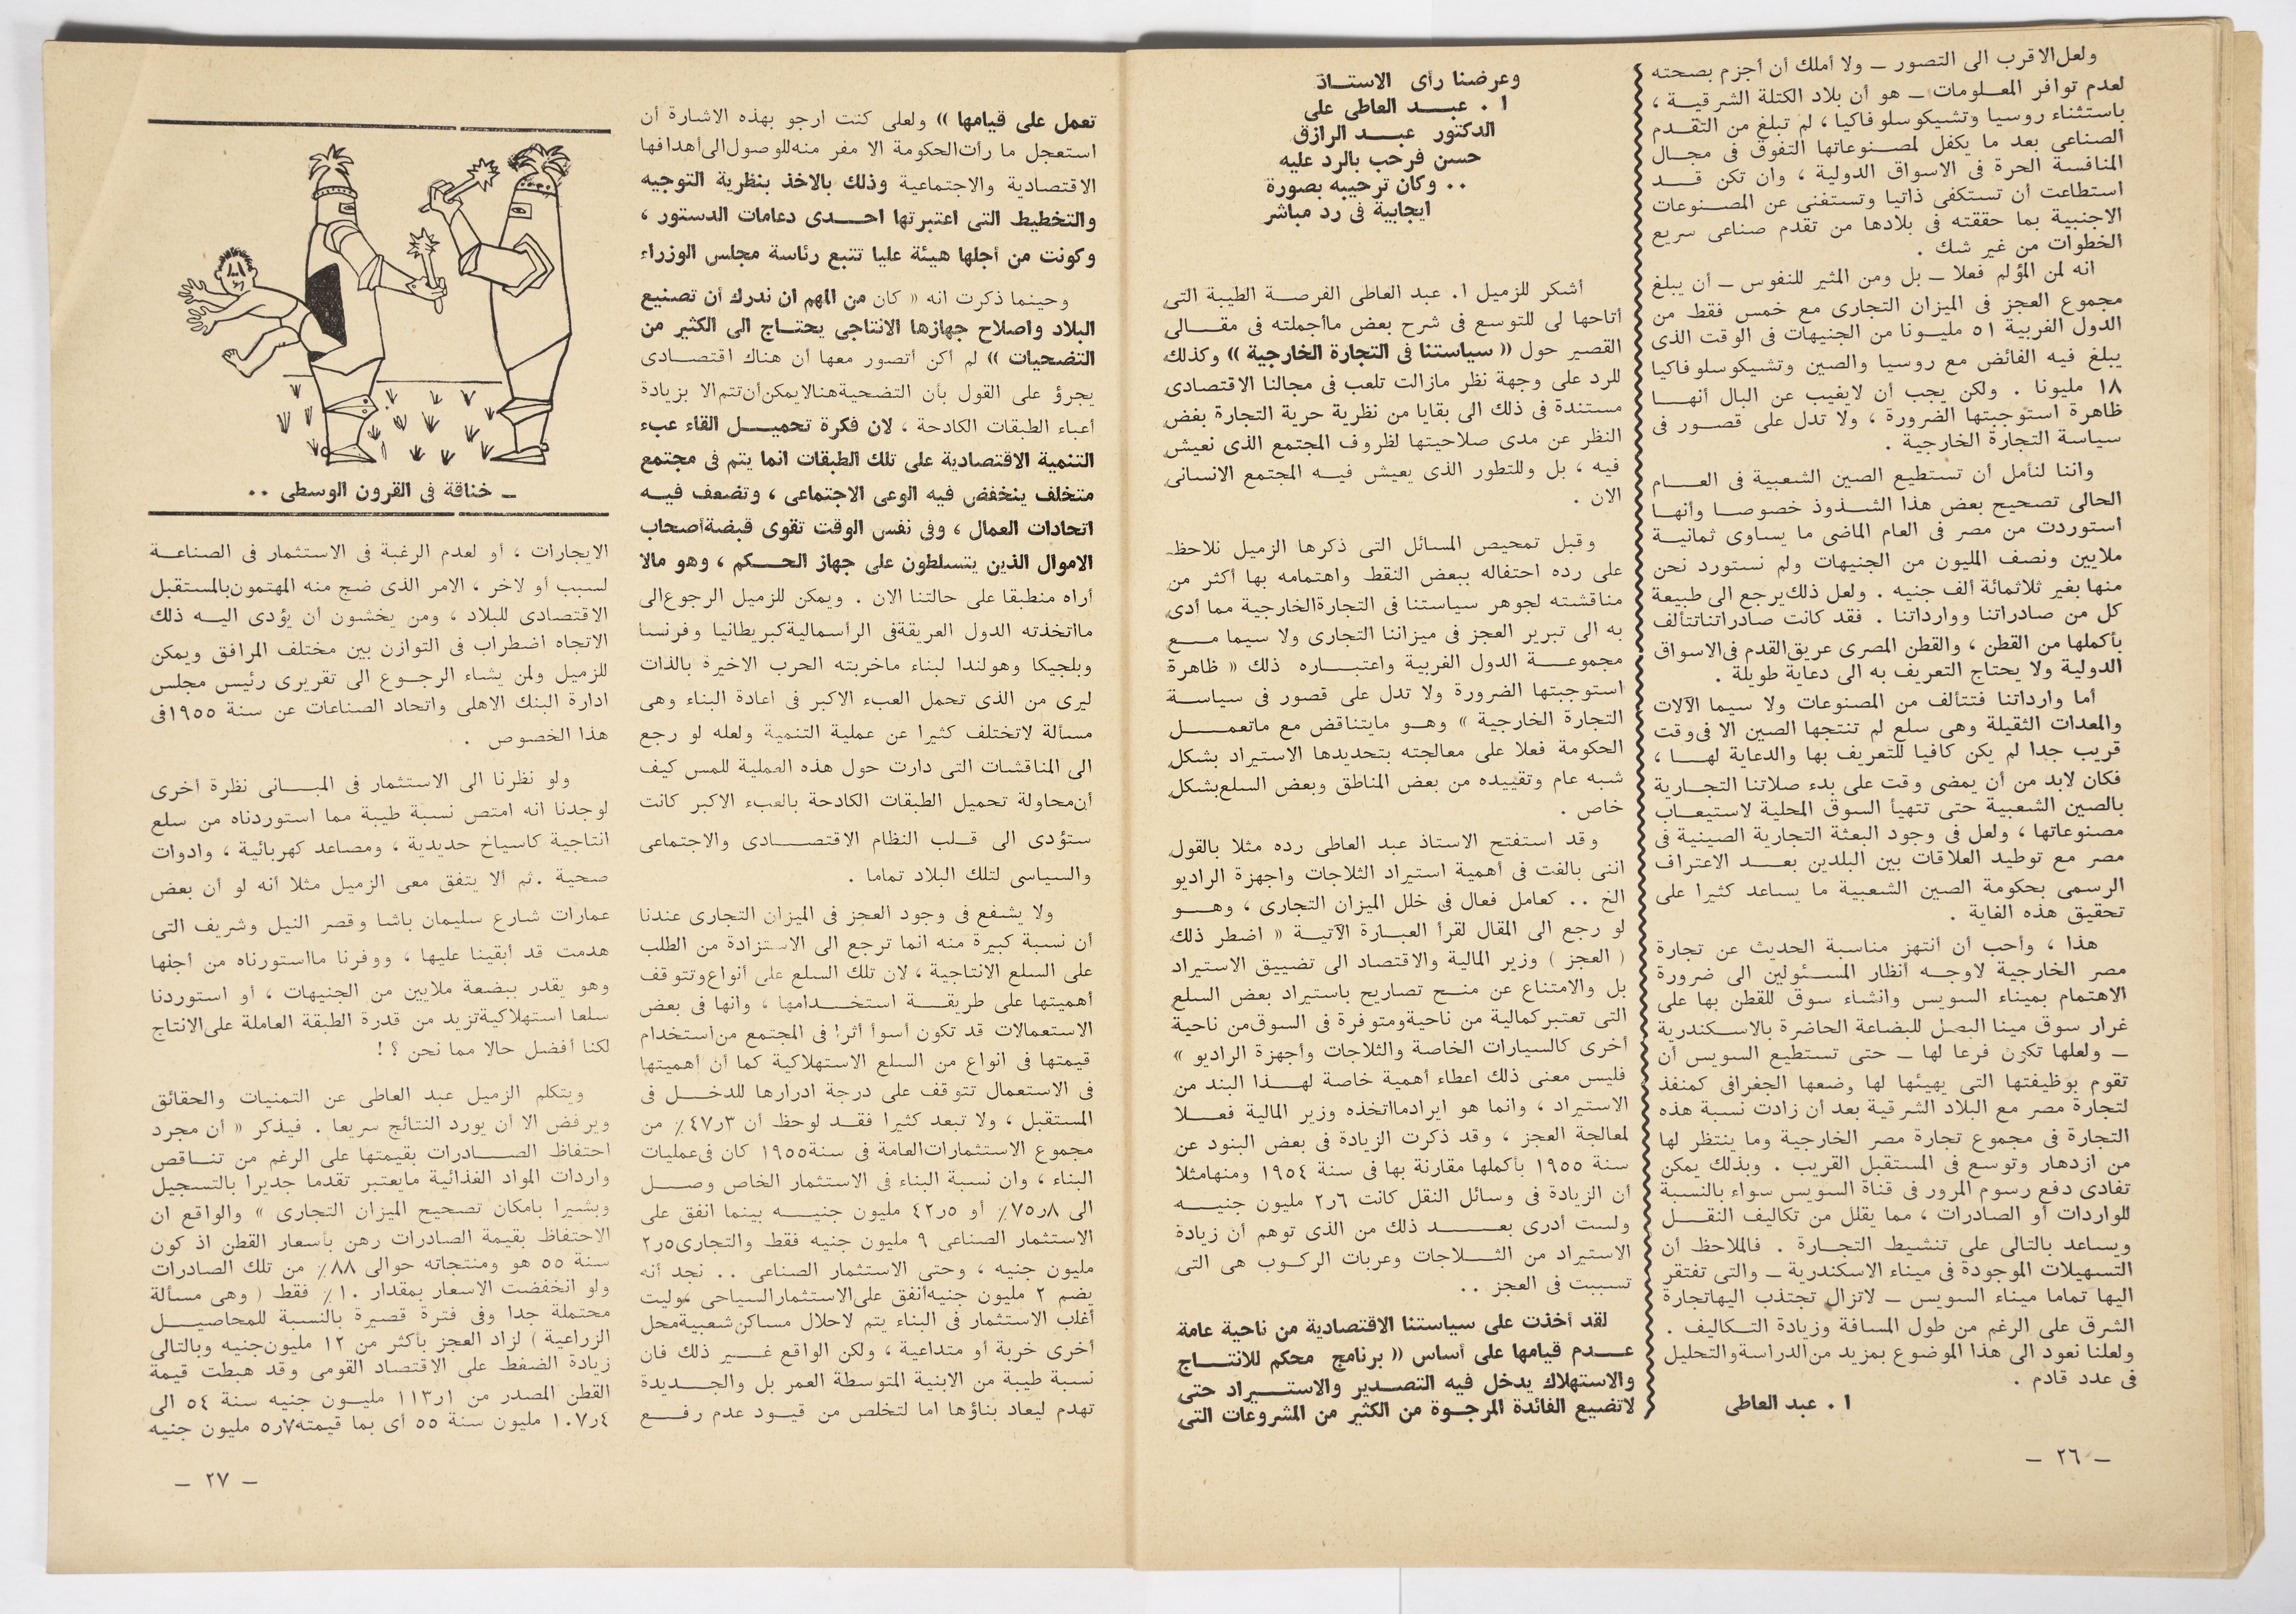 ولعل الاقرب الى التصور — ولا أملك أن أجزم بصحته
لعدم توافر المعلومات — هو أن بلاد الكتلة الشرقية ،
باستثناء روسيا وتشيكوسلوفاكيا ، لم تبلغ من التقدم
الصناعى بعد ما يكفل لمصنوعاتها التفوق فى مجال
المنافسة الحرة فى الاسواق الدولية ، وان تكن قد
استطاعت أن تستكفى ذاتيا وتستغنى عن المصنوعات
الاجنبية بما حققته فى بلادها من تقدم صناعى سريع
الخطوات من غير شك .
انه لمن المؤلم فعلا — بل ومن المثير للنفوس — أن يبلغ
مجموع العجز فى الميزان التجارى مع خمس فقط من
الدول الغربية ٥١ مليونا من الجنيهات فى الوقت الذى
يبلغ فيه الفائض مع روسيا والصين وتشيكوسلوفاكيا
١٨ مليونا . ولكن يجب أن لايغيب عن البال أنها
ظاهرة استوجبتها الضرورة ، ولا تدل على قصور فى
سياسة التجارة الخارجية .
واننا لنأمل أن تستطيع الصين الشعبية فى العام
الحالى تصحيح بعض هذا الشذوذ خصوصا وأنها
استوردت من مصر فى العام الماضى ما يساوى ثمانية
ملايين ونصف المليون من الجنيهات ولم نستورد نحن
منها بغير ثلاثمائة ألف جنيه . ولعل ذلك يرجع الى طبيعة
كل من صادراتنا ووارداتنا . فقد كانت صادراتنا تتألف
بأكملها من القطن ، والقطن المصرى عريق القدم فى الاسواق
الدولية ولا يحتاج التعريف به الى دعاية طويلة .
أما وارداتنا فتتألف من المصنوعات ولا سيما الآلات
والمعدات الثقيلة وهى سلع لم تنتجها الصين الا فى وقت
قريب جدا لم يكن كافيا للتعريف بها والدعاية لها ،
فكان لابد من أن يمضى وقت على بدء صلاتنا التجارية
بالصين الشعبية حتى تتهيأ السوق المحلية لاستيعاب
مصنوعاتها ، ولعل فى وجود البعثة التجارية الصينية فى
مصر مع توطيد العلاقات بين البلدين بعد الاعتراف
الرسمى بحكومة الصين الشعبية ما يساعد كثيرا على
تحقيق هذه الغاية .
هذا ، وأحب أن أنتهز مناسبة الحديث عن تجارة
مصر الخارجية لاوجه أنظار المسئولين الى ضرورة
الاهتمام بميناء السويس وانشاء سوق للقطن بها على
غرار سوق مينا البصل للبضاعة الحاضرة بالاسكندرية
— ولعلها تكون فرعا لها — حتى تستطيع السويس أن
تقوم بوظيفتها التى يهيئها لها وضعها الجغرافى كمنفذ
لتجارة مصر مع البلاد الشرقية بعد أن زادت نسبة هذه
التجارة فى مجموع تجارة مصر الخارجية وما ينتظر لها
من ازدهار وتوسع فى المستقبل القريب . وبذلك يمكن
تفادى دفع رسوم المرور فى قناة السويس سواء بالنسبة
للواردات أو الصادرات ، مما يقلل من تكاليف النقل
ويساعد بالتالى على تنشيط التجارة . فالملاحظ أن
التسهيلات الموجودة فى ميناء الاسكندرية — والتى تفتقر
اليها تماما ميناء السويس — لاتزال تجتذب اليها تجارة
الشرق على الرغم من طول المسافة وزيادة التكاليف .
ولعلنا نعود الى هذا الموضوع بمزيد من الدراسة والتحليل
فى عدد قادم .
ا . عبد العاطى
— ٢٦ —
وعرضنا رأى الاستاذ
ا . عبد العاطى على
الدكتور عبد الرازق
حسن فرحب بالرد عليه
.. وكان ترحيبه بصورة
ايجابية فى رد مباشر
أشكر للزميل ا. عبد العاطى الفرصة الطيبة التى
أتاحها لى للتوسع فى شرح بعض ما أجملته فى مقالى
القصير حول « سياستنا فى التجارة الخارجية » وكذلك
للرد على وجهة نظر مازالت تلعب فى مجالنا الاقتصادى
مستندة فى ذلك الى بقايا من نظرية حرية التجارة بغض
النظر عن مدى صلاحيتها لظروف المجتمع الذى نعيش
فيه ، بل وللتطور الذى يعيش فيه المجتمع الانسانى
الان .
وقبل تمحيص المسائل التى ذكرها الزميل نلاحظ
على رده احتفاله ببعض النقط واهتمامه بها أكثر من
مناقشته لجوهر سياستنا فى التجارة الخارجية مما أدى
به الى تبرير العجز فى ميزاننا التجارى ولا سيما مع
مجموعة الدول الغربية واعتباره ذلك « ظاهرة
استوجبتها الضرورة ولا تدل على قصور فى سياسة
التجارة الخارجية » وهو مايتناقض مع ماتعمل
الحكومة فعلا على معالجته بتحديدها الاستيراد بشكل
شبه عام وتقييده من بعض المناطق وبعض السلع بشكل
خاص .
وقد استفتح الاستاذ عبد العاطى رده مثلا بالقول
اننى بالغت فى أهمية استيراد الثلاجات واجهزة الراديو
الخ .. كعامل فعال فى خلل الميزان التجارى ، وهو
لو رجع الى المقال لقرأ العبارة الآتية « اضطر ذلك
( العجز ) وزير المالية والاقتصاد الى تضييق الاستيراد
بل والامتناع عن منح تصاريح باستيراد بعض السلع
التى تعتبر كمالية من ناحية ومتوفرة فى السوق من ناحية
أخرى كالسيارات الخاصة والثلاجات وأجهزة الراديو »
فليس معنى ذلك اعطاء أهمية خاصة لهذا البند من
الاستيراد ، وانما هو ايراد مااتخذه وزير المالية فعلا
لمعالجة العجز ، وقد ذكرت الزيادة فى بعض البنود عن
سنة ١٩٥٥ بأكملها مقارنة بها فى سنة ١٩٥٤ ومنها مثلا
أن الزيادة فى وسائل النقل كانت ٢٫٦ مليون جنيه
ولست أدرى بعد ذلك من الذى توهم أن زيادة
الاستيراد من الثلاجات وعربات الركوب هى التى
تسببت فى العجز ..
لقد أخذت على سياستنا الاقتصادية من ناحية عامة
عدم قيامها على أساس « برنامج محكم للانتاج
والاستهلاك يدخل فيه التصدير والاستيراد حتى
لاتضيع الفائدة المرجوة من الكثير من المشروعات التى
تعمل على قيامها » ولعلى كنت ارجو بهذه الاشارة أن
استعجل ما رأت الحكومة الا مفر منه للوصول الى أهدافها
الاقتصادية والاجتماعية وذلك بالاخذ بنظرية التوجيه
والتخطيط التى اعتبرتها احدى دعامات الدستور ،
وكونت من أجلها هيئة عليا تتبع رئاسة مجلس الوزراء
وحينما ذكرت انه « كان من المهم ان ندرك أن تصنيع
البلاد واصلاح جهازها الانتاجى يحتاج الى الكثير من
التضحيات » لم أكن أتصور معها أن هناك اقتصادى
يجرؤ على القول بأن التضحية هنا لايمكن أن تتم الا بزيادة
أعباء الطبقات الكادحة ، لان فكرة تحميل القاء عبء
التنمية الاقتصادية على تلك الطبقات انما يتم فى مجتمع
متخلف ينخفض فيه الوعى الاجتماعى ، وتضعف فيه
اتحادات العمال ، وفى نفس الوقت تقوى قبضة أصحاب
الاموال الذين يتسلطون على جهاز الحكم ، وهو مالا
أراه منطبقا على حالتنا الان . ويمكن للزميل الرجوع الى
مااتخذته الدول العريقة فى الرأسمالية كبريطانيا وفرنسا
وبلجيكا وهولندا لبناء ماخربته الحرب الاخيرة بالذات
ليرى من الذى تحمل العبء الاكبر فى اعادة البناء وهى
مسألة لاتختلف كثيرا عن عملية التنمية ولعله لو رجع
الى المناقشات التى دارت حول هذه العملية للمس كيف
أن محاولة تحميل الطبقات الكادحة بالعبء الاكبر كانت
ستؤدى الى قلب النظام الاقتصادى والاجتماعى
والسياسى لتلك البلاد تماما .
ولا يشفع فى وجود العجز فى الميزان التجارى عندنا
أن نسبة كبيرة منه انما ترجع الى الاستزادة من الطلب
على السلع الانتاجية ، لان تلك السلع على أنواع وتتوقف
أهميتها على طريقة استخدامها ، وانها فى بعض
الاستعمالات قد تكون أسوأ أثرا فى المجتمع من استخدام
قيمتها فى انواع من السلع الاستهلاكية كما أن أهميتها
فى الاستعمال تتوقف على درجة ادرارها للدخل فى
المستقبل ، ولا تبعد كثيرا فقد لوحظ أن ٤٧٫٣٪ من
مجموع الاستثمارات العامة فى سنة ١٩٥٥ كان فى عمليات
البناء ، وان نسبة البناء فى الاستثمار الخاص وصل
الى ٧٥٫٨٪ أو ٤٢٫٥ مليون جنيه بينما انفق على
الاستثمار الصناعى ٩ مليون جنيه فقط والتجارى ٢٫٥
مليون جنيه ، وحتى الاستثمار الصناعى .. نجد أنه
يضم ٢ مليون جنيه أنفق على الاستثمار السياحى ، وليت
أغلب الاستثمار فى البناء يتم لاحلال مساكن شعبية محل
أخرى خربة أو متداعية ، ولكن الواقع غير ذلك فان
نسبة طيبة من الابنية المتوسطة العمر بل والجديدة
تهدم ليعاد بناؤها اما لتخلص من قيود عدم رفع
— خناقة فى القرون الوسطى ..
الايجارات ، أو لعدم الرغبة فى الاستثمار فى الصناعة
لسبب أو لاخر ، الامر الذى ضج منه المهتمون بالمستقبل
الاقتصادى للبلاد ، ومن يخشون أن يؤدى اليه ذلك
الاتجاه اضطراب فى التوازن بين مختلف المرافق ويمكن
للزميل ولمن يشاء الرجوع الى تقريرى رئيس مجلس
ادارة البنك الاهلى واتحاد الصناعات عن سنة ١٩٥٥ فى
هذا الخصوص .
ولو نظرنا الى الاستثمار فى المبانى نظرة أخرى
لوجدنا انه امتص نسبة طيبة مما استوردناه من سلع
انتاجية كاسياخ حديدية ، ومصاعد كهربائية ، وادوات
صحية . ثم ألا يتفق معى الزميل مثلا أنه لو أن بعض
عمارات شارع سليمان باشا وقصر النيل وشريف التى
هدمت قد أبقينا عليها ، ووفرنا مااستورناه من أجلها
وهو يقدر ببضعة ملايين من الجنيهات ، أو استوردنا
سلعا استهلاكية تزيد من قدرة الطبقة العاملة على الانتاج
لكنا أفضل حالا مما نحن ؟ !
ويتكلم الزميل عبد العاطى عن التمنيات والحقائق
ويرفض الا ان يورد النتائج سريعا . فيذكر « أن مجرد
احتفاظ الصادرات بقيمتها على الرغم من تناقص
واردات المواد الغذائية مايعتبر تقدما جديرا بالتسجيل
وبشيرا بامكان تصحيح الميزان التجارى » والواقع ان
الاحتفاظ بقيمة الصادرات رهن بأسعار القطن اذ كون
سنة ٥٥ هو ومنتجاته حوالى ٨٨٪ من تلك الصادرات
ولو انخفضت الاسعار بمقدار ١٠٪ فقط ( وهى مسألة
محتملة جدا وفى فترة قصيرة بالنسبة للمحاصيل
الزراعية ) لزاد العجز بأكثر من ١٢ مليون جنيه وبالتالى
زيادة الضغط على الاقتصاد القومى وقد هبطت قيمة
القطن المصدر من ١١٣٫١ مليون جنيه سنة ٥٤ الى
١٠٧٫٤ مليون سنة ٥٥ أى بما قيمته ٥٫٧ مليون جنيه
— ٢٧ —